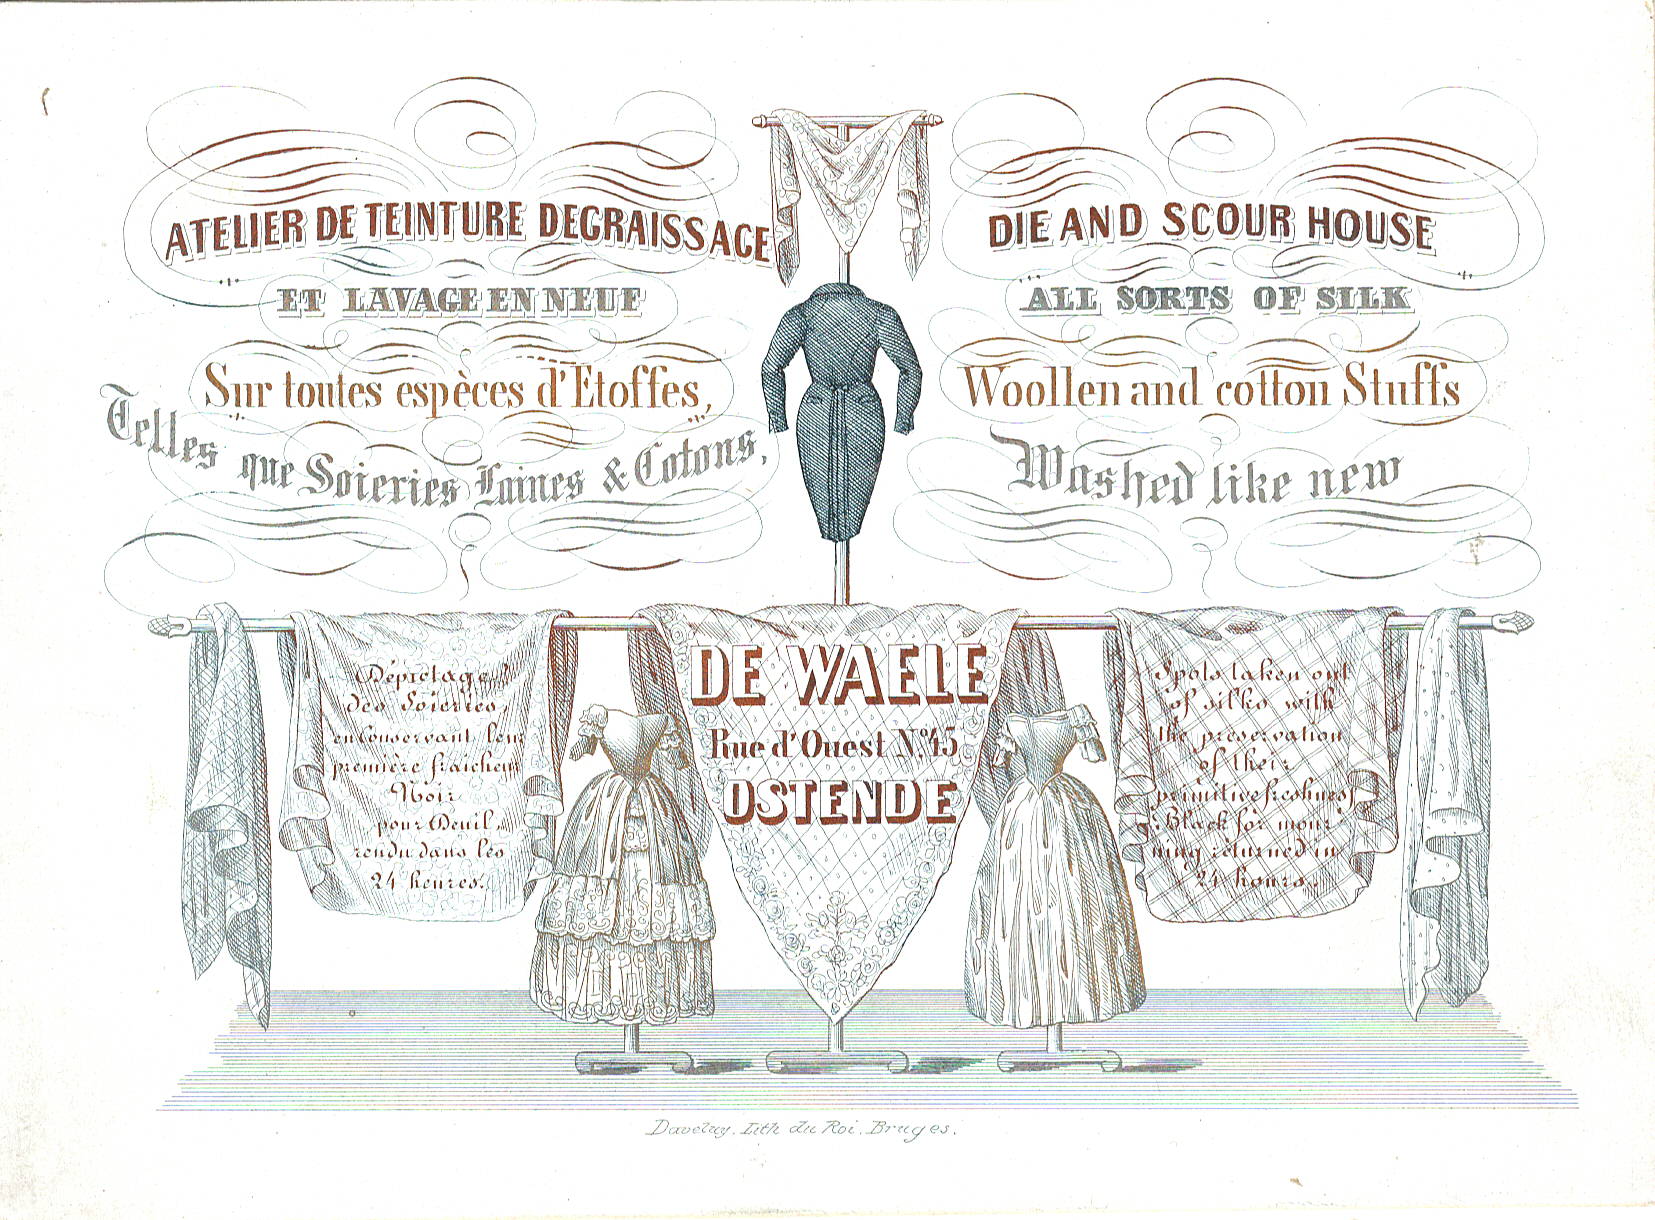 ATELIER DE TEINTURE DEGRAISSAGE
ET LAVAGE EN NEUF
Sur toutes espèces d'Etoffes,
Telles que Soieries Laines & Cotons,
DIE AND SCOUR HOUSE
ALL SORTS OF SILK
Woollen and cotton Stuffs
Washed like new
Dépictage
des Soieries,
en Conservant leur
première fraicheur
Noir
pour Deuil,
rendu dans les
24 heures.
DE WAELE
Rue d'Ouest N.º 45
OSTENDE
Spots taken out
of silks with
the preservation
of their
primitive freshness
Black for mour
ning returned in
24 hours.
Daveluy. Lith du Roi. Bruges.